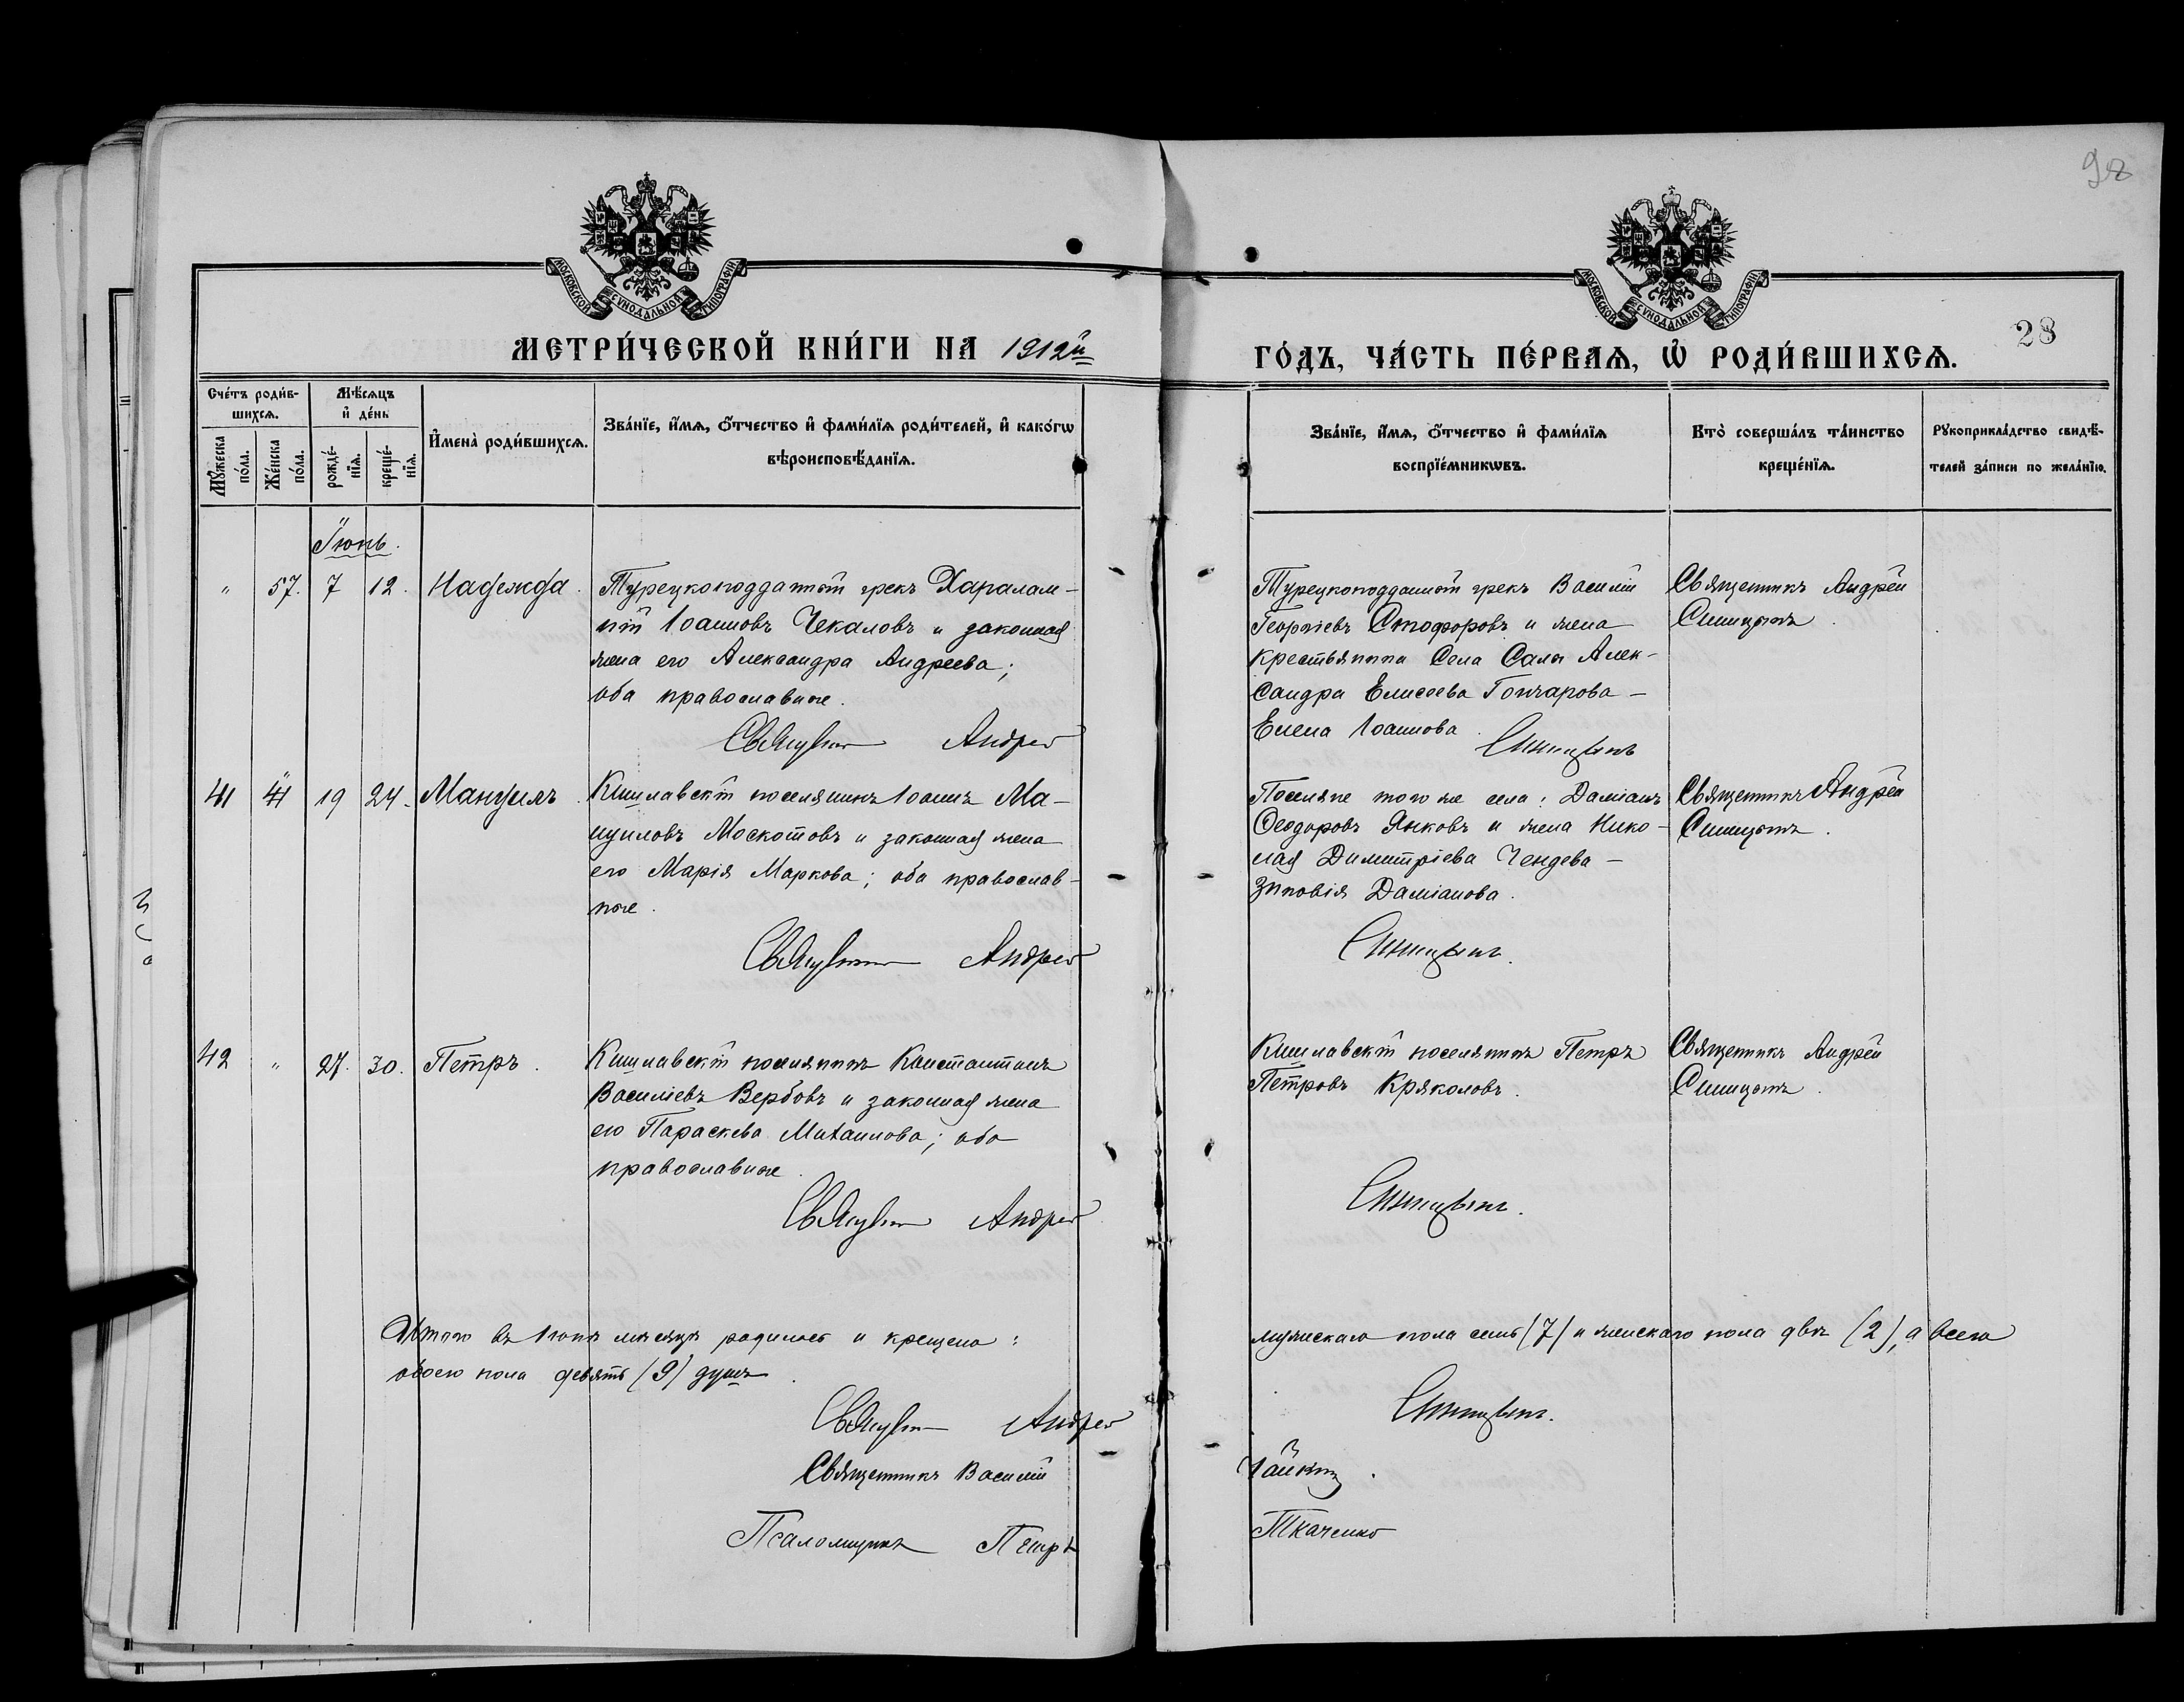 98
МОСКОВСКОЙ СѴНОДАЛЬНОЙ ТИПОГРАФІИ
МОСКОВСКОЙ СѴНОДАЛЬНОЙ ТИПОГРАФІИ
28
МЕТРИ́ЧЕСКОЙ КНИ́ГИ НА 1912й
ГО́ДЪ, ЧА́СТЬ ПЕ́РВАѦ, Ѡ҆ РОДИ́ВШИХСѦ.
Сче́тъ роди́в-
шихсѧ.
Мꙋ́жеска по́ла.
Же́нска по́ла.
Мѣ́сѧцъ
и҆ де́нь
рожде́-
нїѧ.
креще́-
нїѧ.
И҆мена̀ роди́вшихсѧ.
Зва́нїе, и҆́мѧ, ѻ҆́тчество и҆ фами́лїѧ роди́телей, и҆ како́гѡ
вѣроисповѣ́данїѧ.
Зва́нїе, и҆́мѧ, ѻ҆́тчество и҆ фами́лїѧ
воспрїе́мникѡвъ.
Кто̀ соверша́лъ та́инство
креще́нїѧ.
Рꙋкоприкла́дство свидѣ́-
телей за́писи по жела́нїю.
Іюнь.
„ 57. 7 12. Надежда.
Турецкоподданный грекъ Харалам-
пій Іоанновъ Чекаловъ и законная
жена его Александра Андреева;
оба православные.
Священникъ Андрей
Турецкоподданный грекъ Василій
Георгіевъ Стофоровъ и жена
крестьянина Села Салы Алек-
сандра Елисеева Гончарова –
Елена Іоаннова.
Синицынъ
Священникъ Андрей
Синицынъ.
41 „ 19 24. Мануилъ.
Кишлавскій поселянинъ Іоаннъ Ма-
нуиловъ Москотовъ и законная жена
его Марія Маркова; оба православ-
ные.
Священникъ Андрей
Поселяне того же села: Даміанъ
Ѳеодоровъ Янковъ и жена Нико-
лая Димитріева Чендева –
Зиновія Даміанова.
Синицынъ.
Священникъ Андрей
Синицынъ.
42 „ 27. 30. Петръ.
Кишлавскій поселянинъ Константинъ
Василіевъ Вербовъ и законная жена
его Параскева Михаилова; оба
православные.
Священникъ Андрей
Кишлавскій поселянинъ Петръ
Петровъ Кряколовъ.
Синицынъ.
Священникъ Андрей
Синицынъ.
Итого въ Іюнѣ мѣсяцѣ родилось и крещено: мужескаго пола семь (7) и женскаго пола двѣ (2), а всего
обоего пола девять (9) душъ.
Священникъ Андрей Синицынъ.
Священникъ Василій
Псаломщикъ Петръ Ткаченко